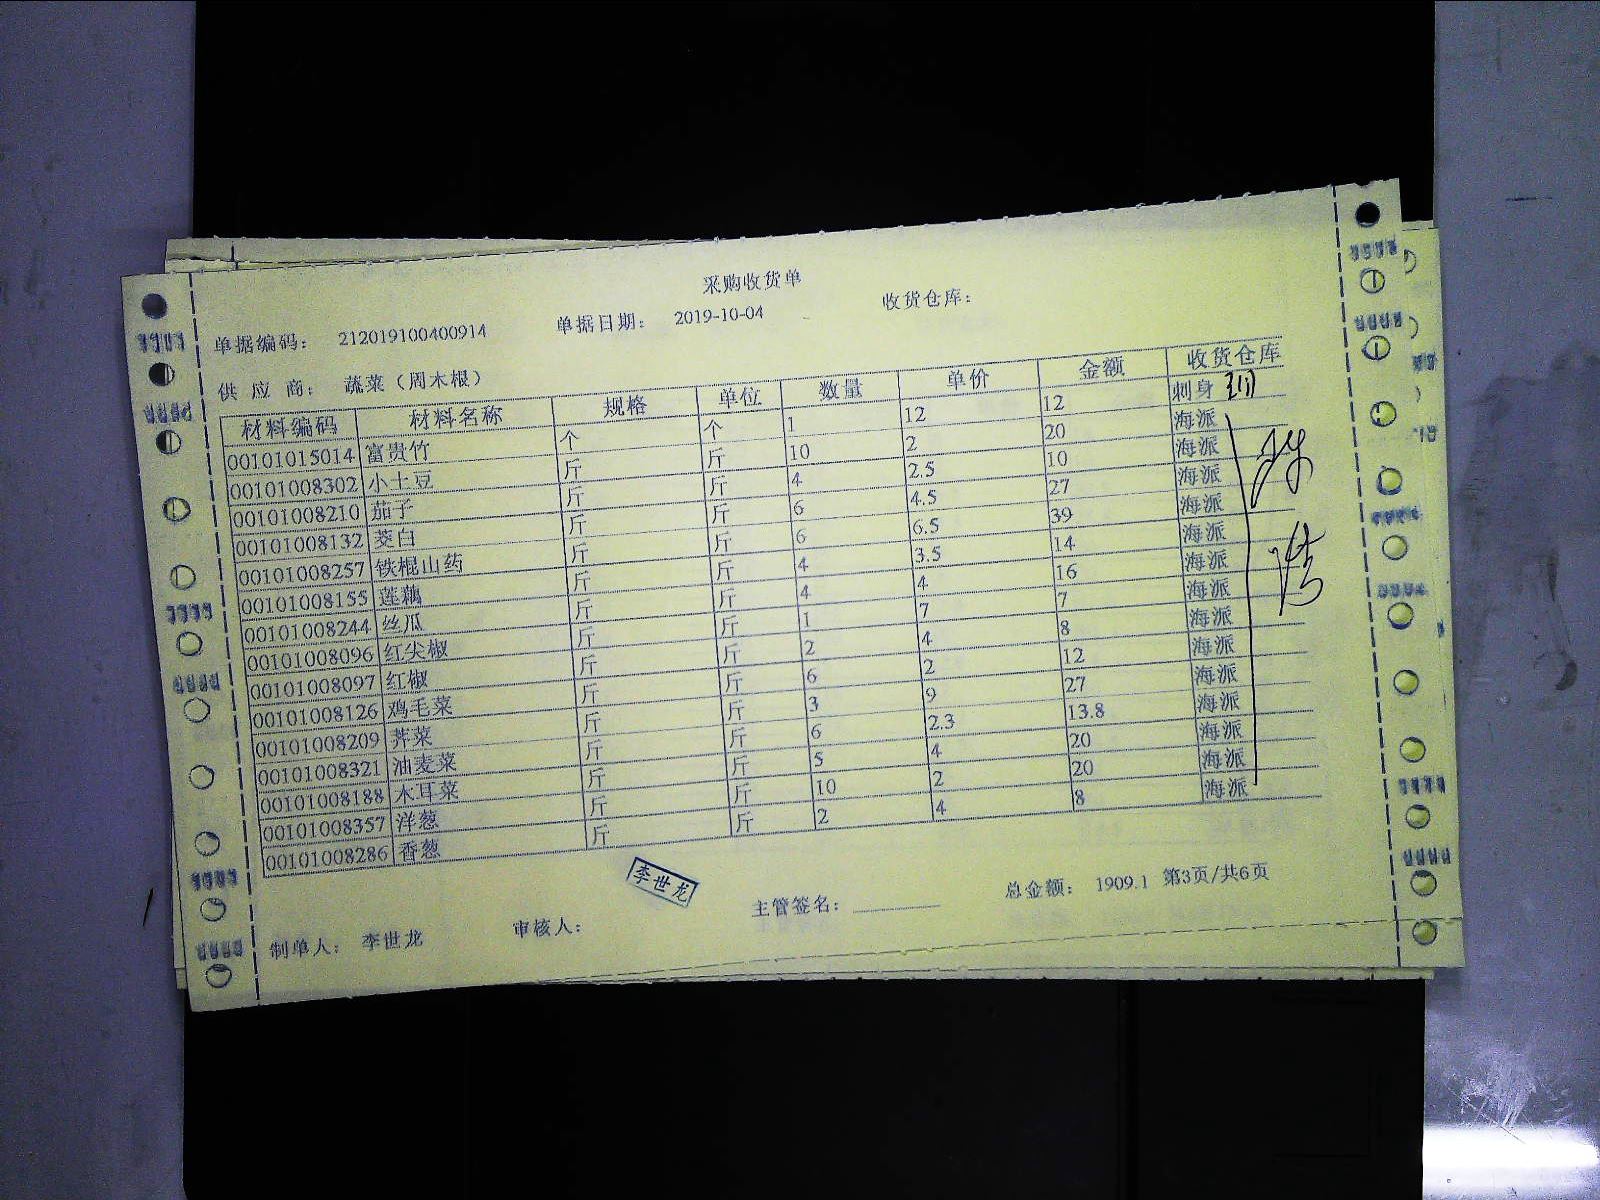 采购收货单
单据编码： 212019100400914 单据日期： 2019-10-04 收货仓库：
供 应 商： 蔬菜（周木根）
材料编码 材料名称 规格 单位 数量 单价 金额 收货仓库
00101015014 富贵竹 个 个 1 12 12 刺身
00101008302 小土豆 斤 斤 10 2 20 海派
00101008210 茄子 斤 斤 4 2.5 10 海派
00101008132 茭白 斤 斤 6 4.5 27 海派
00101008257 铁棍山药 斤 斤 6 6.5 39 海派
00101008155 莲藕 斤 斤 4 3.5 14 海派
00101008244 丝瓜 斤 斤 4 4 16 海派
00101008096 红尖椒 斤 斤 1 7 7 海派
00101008097 红椒 斤 斤 2 4 8 海派
00101008126 鸡毛菜 斤 斤 6 2 12 海派
00101008209 荠菜 斤 斤 3 9 27 海派
00101008321 油麦菜 斤 斤 6 2.3 13.8 海派
00101008188 木耳菜 斤 斤 5 4 20 海派
00101008357 洋葱 斤 斤 10 2 20 海派
00101008286 香葱 斤 斤 2 4 8 海派
李世龙
制单人： 李世龙 审核人： 主管签名： 总金额： 1909.1 第3页/共6页